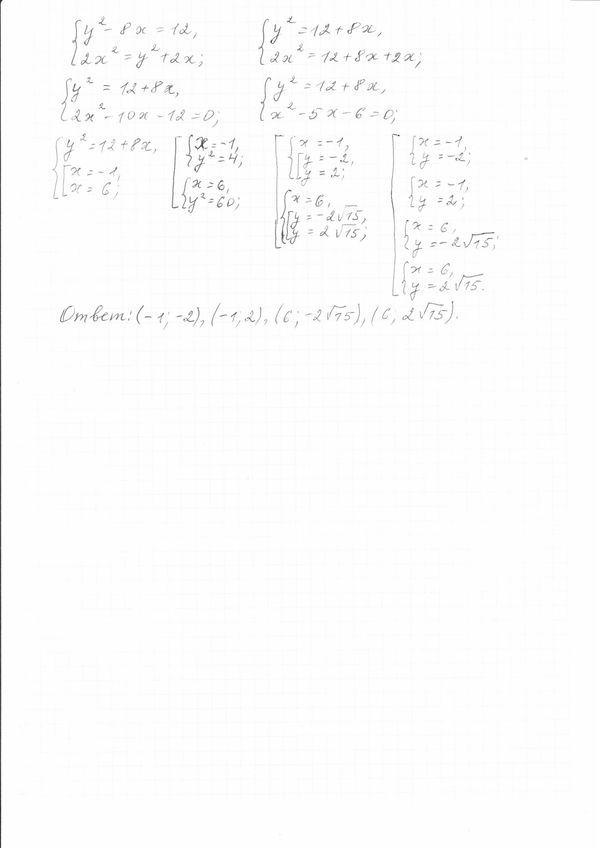 { y² - 8x = 12, { y² = 12 + 8x,
{ 2x² = y² + 2x; { 2x² = 12 + 8x + 2x;
{ y² = 12 + 8x, { y² = 12 + 8x,
{ 2x² - 10x - 12 = 0; { x² - 5x - 6 = 0;
{ y² = 12 + 8x,
[ x = -1,
[ x = 6;
[ { x = -1,
{ y² = 4;
{ x = 6,
{ y² = 60;
[ { x = -1,
[ y = -2,
[ y = 2;
{ x = 6,
[ y = -2√15,
[ y = 2√15;
[ { x = -1,
{ y = -2;
{ x = -1,
{ y = 2;
{ x = 6,
{ y = -2√15;
{ x = 6,
{ y = 2√15.
Ответ: (-1; -2), (-1; 2), (6; -2√15), (6; 2√15).